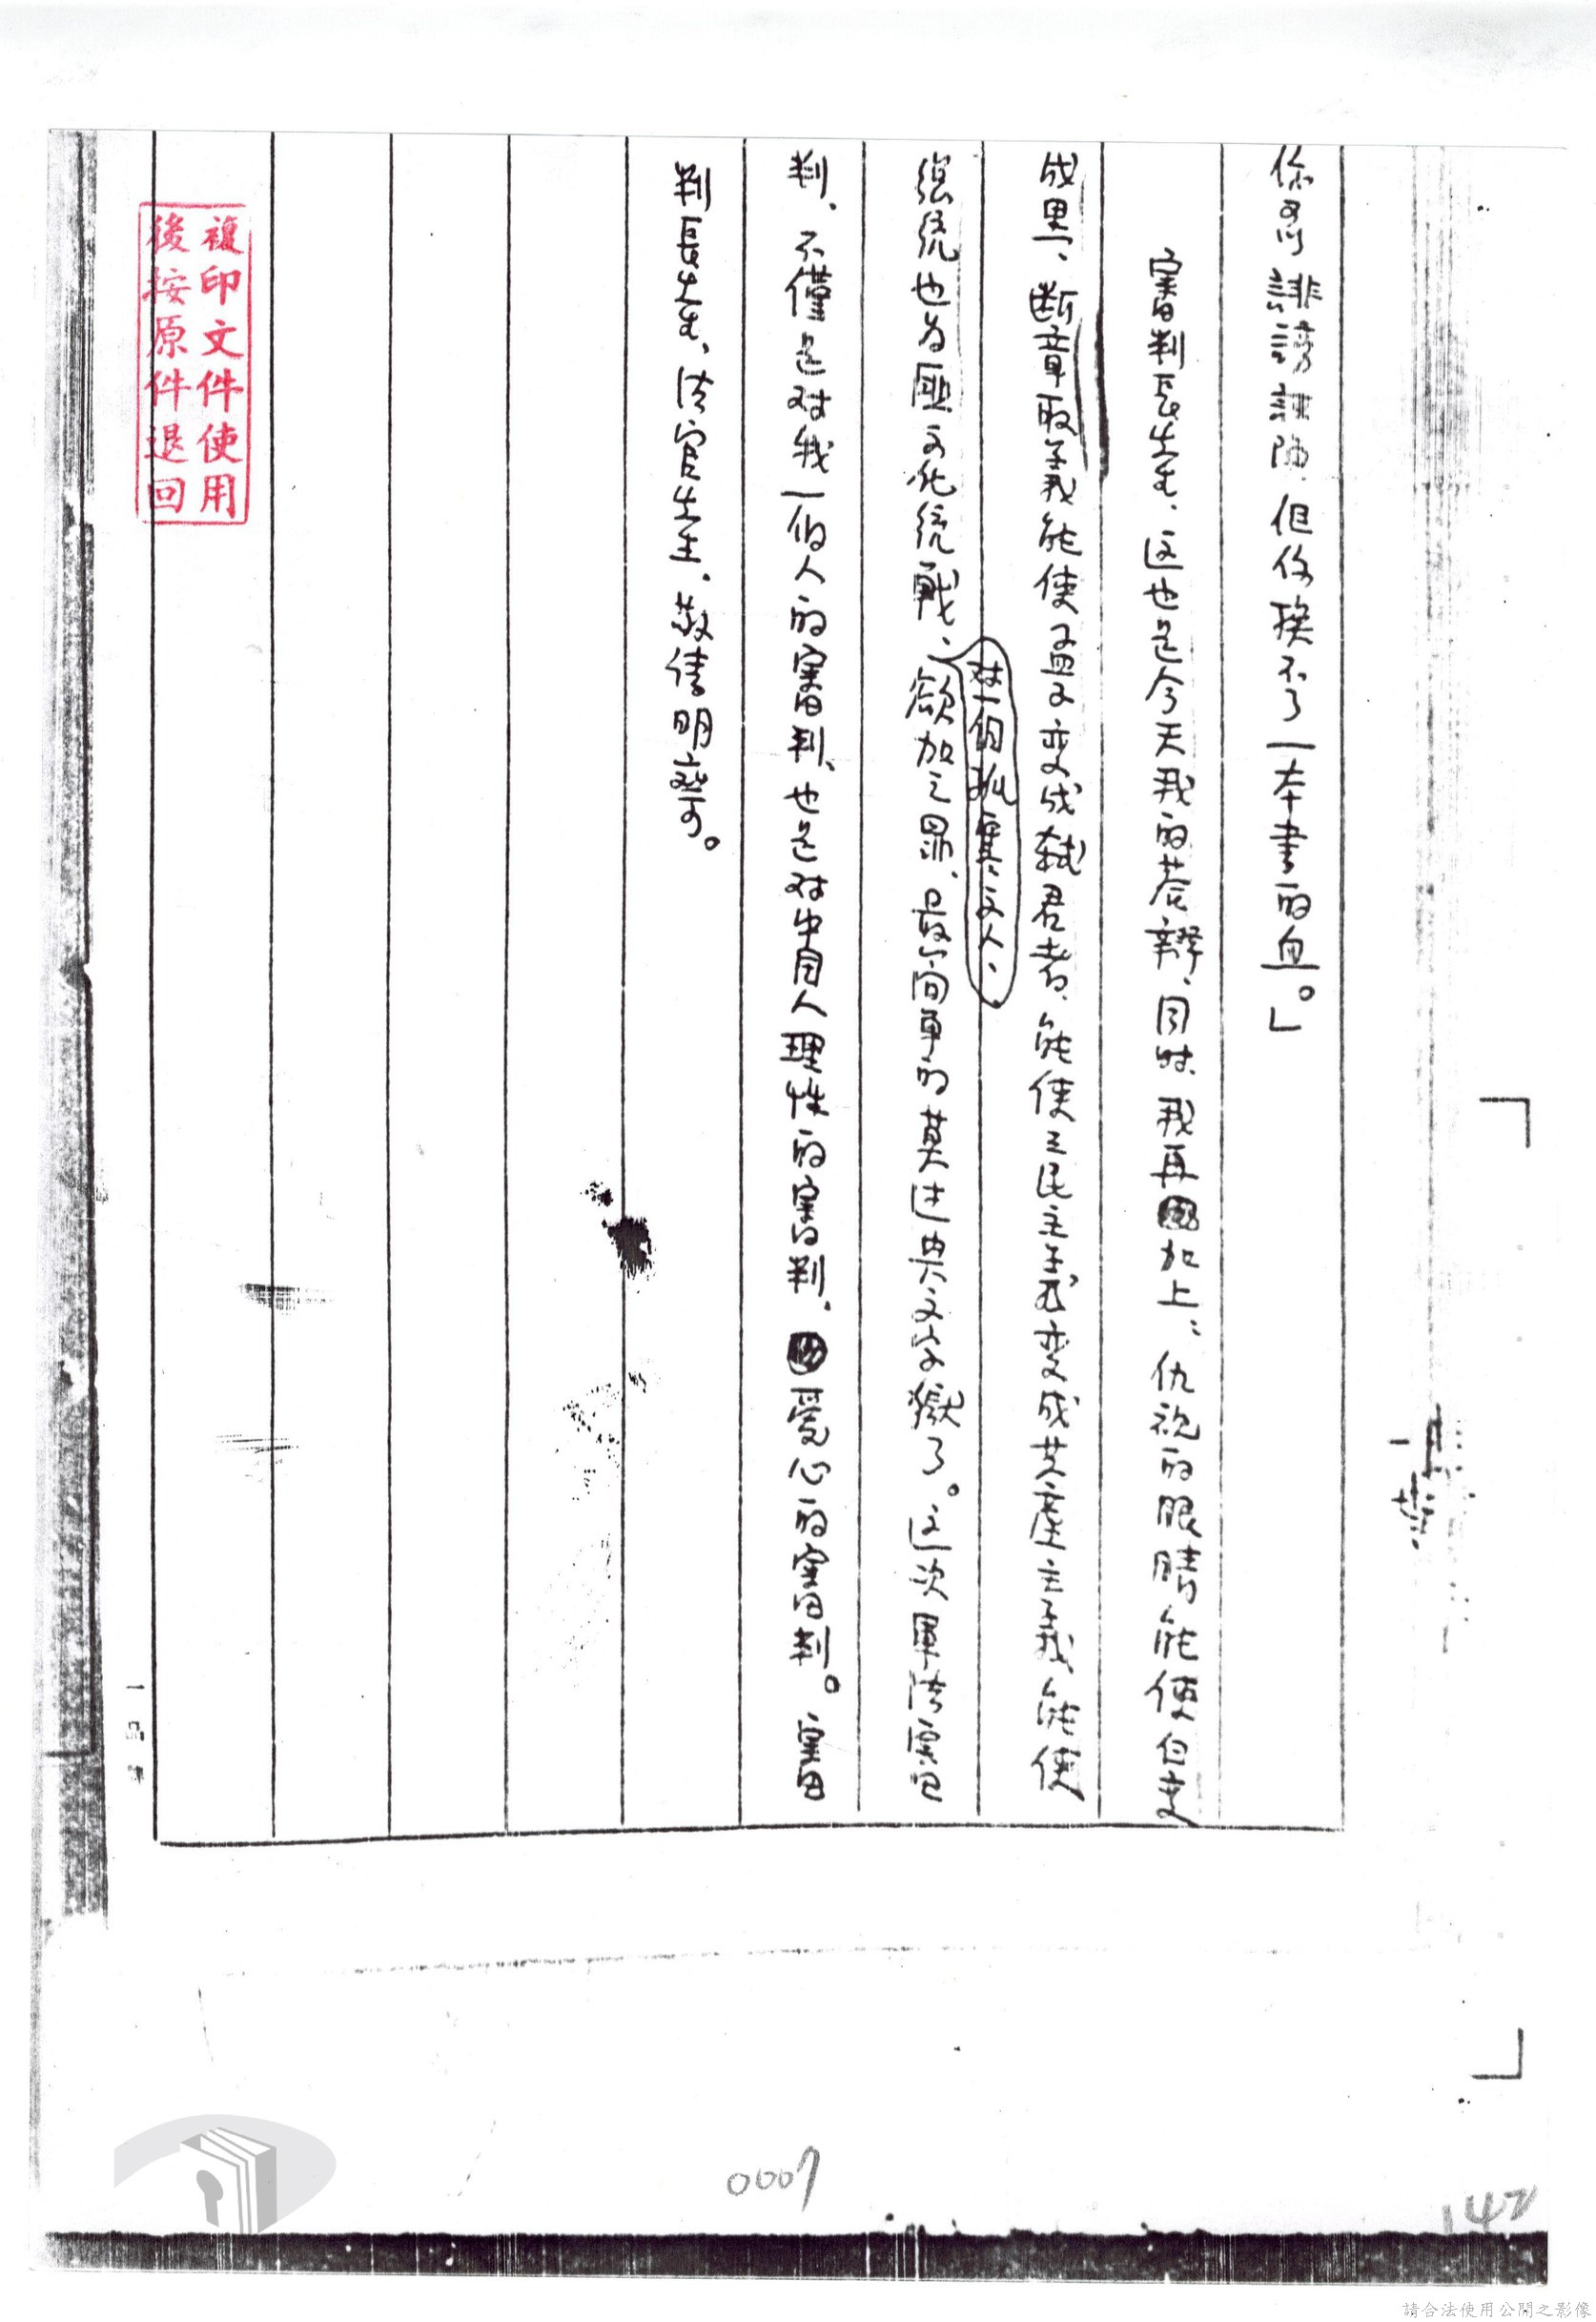 你可以誹謗誣陷、但你換不了一本書的血。」
審判長先生、这也是今天我的荅辯、同時、我再加上：仇視的眼睛能使白变
成黑、断章取義能使孟子变成弑君者、能使三民主義变成共產主義、能使
總統也为匪文化統戰、對佰孤寒文人、欲加之罪、最简单的莫过典文字獄了。这次軍法審
判、不僅是对我一個人的審判、也是对中国人理性的審判、愛心的審判。審
判長先生、法官先生、敬請明察。
複印文件使用
後按原件退回
0007
147
請合法使用公開之影像